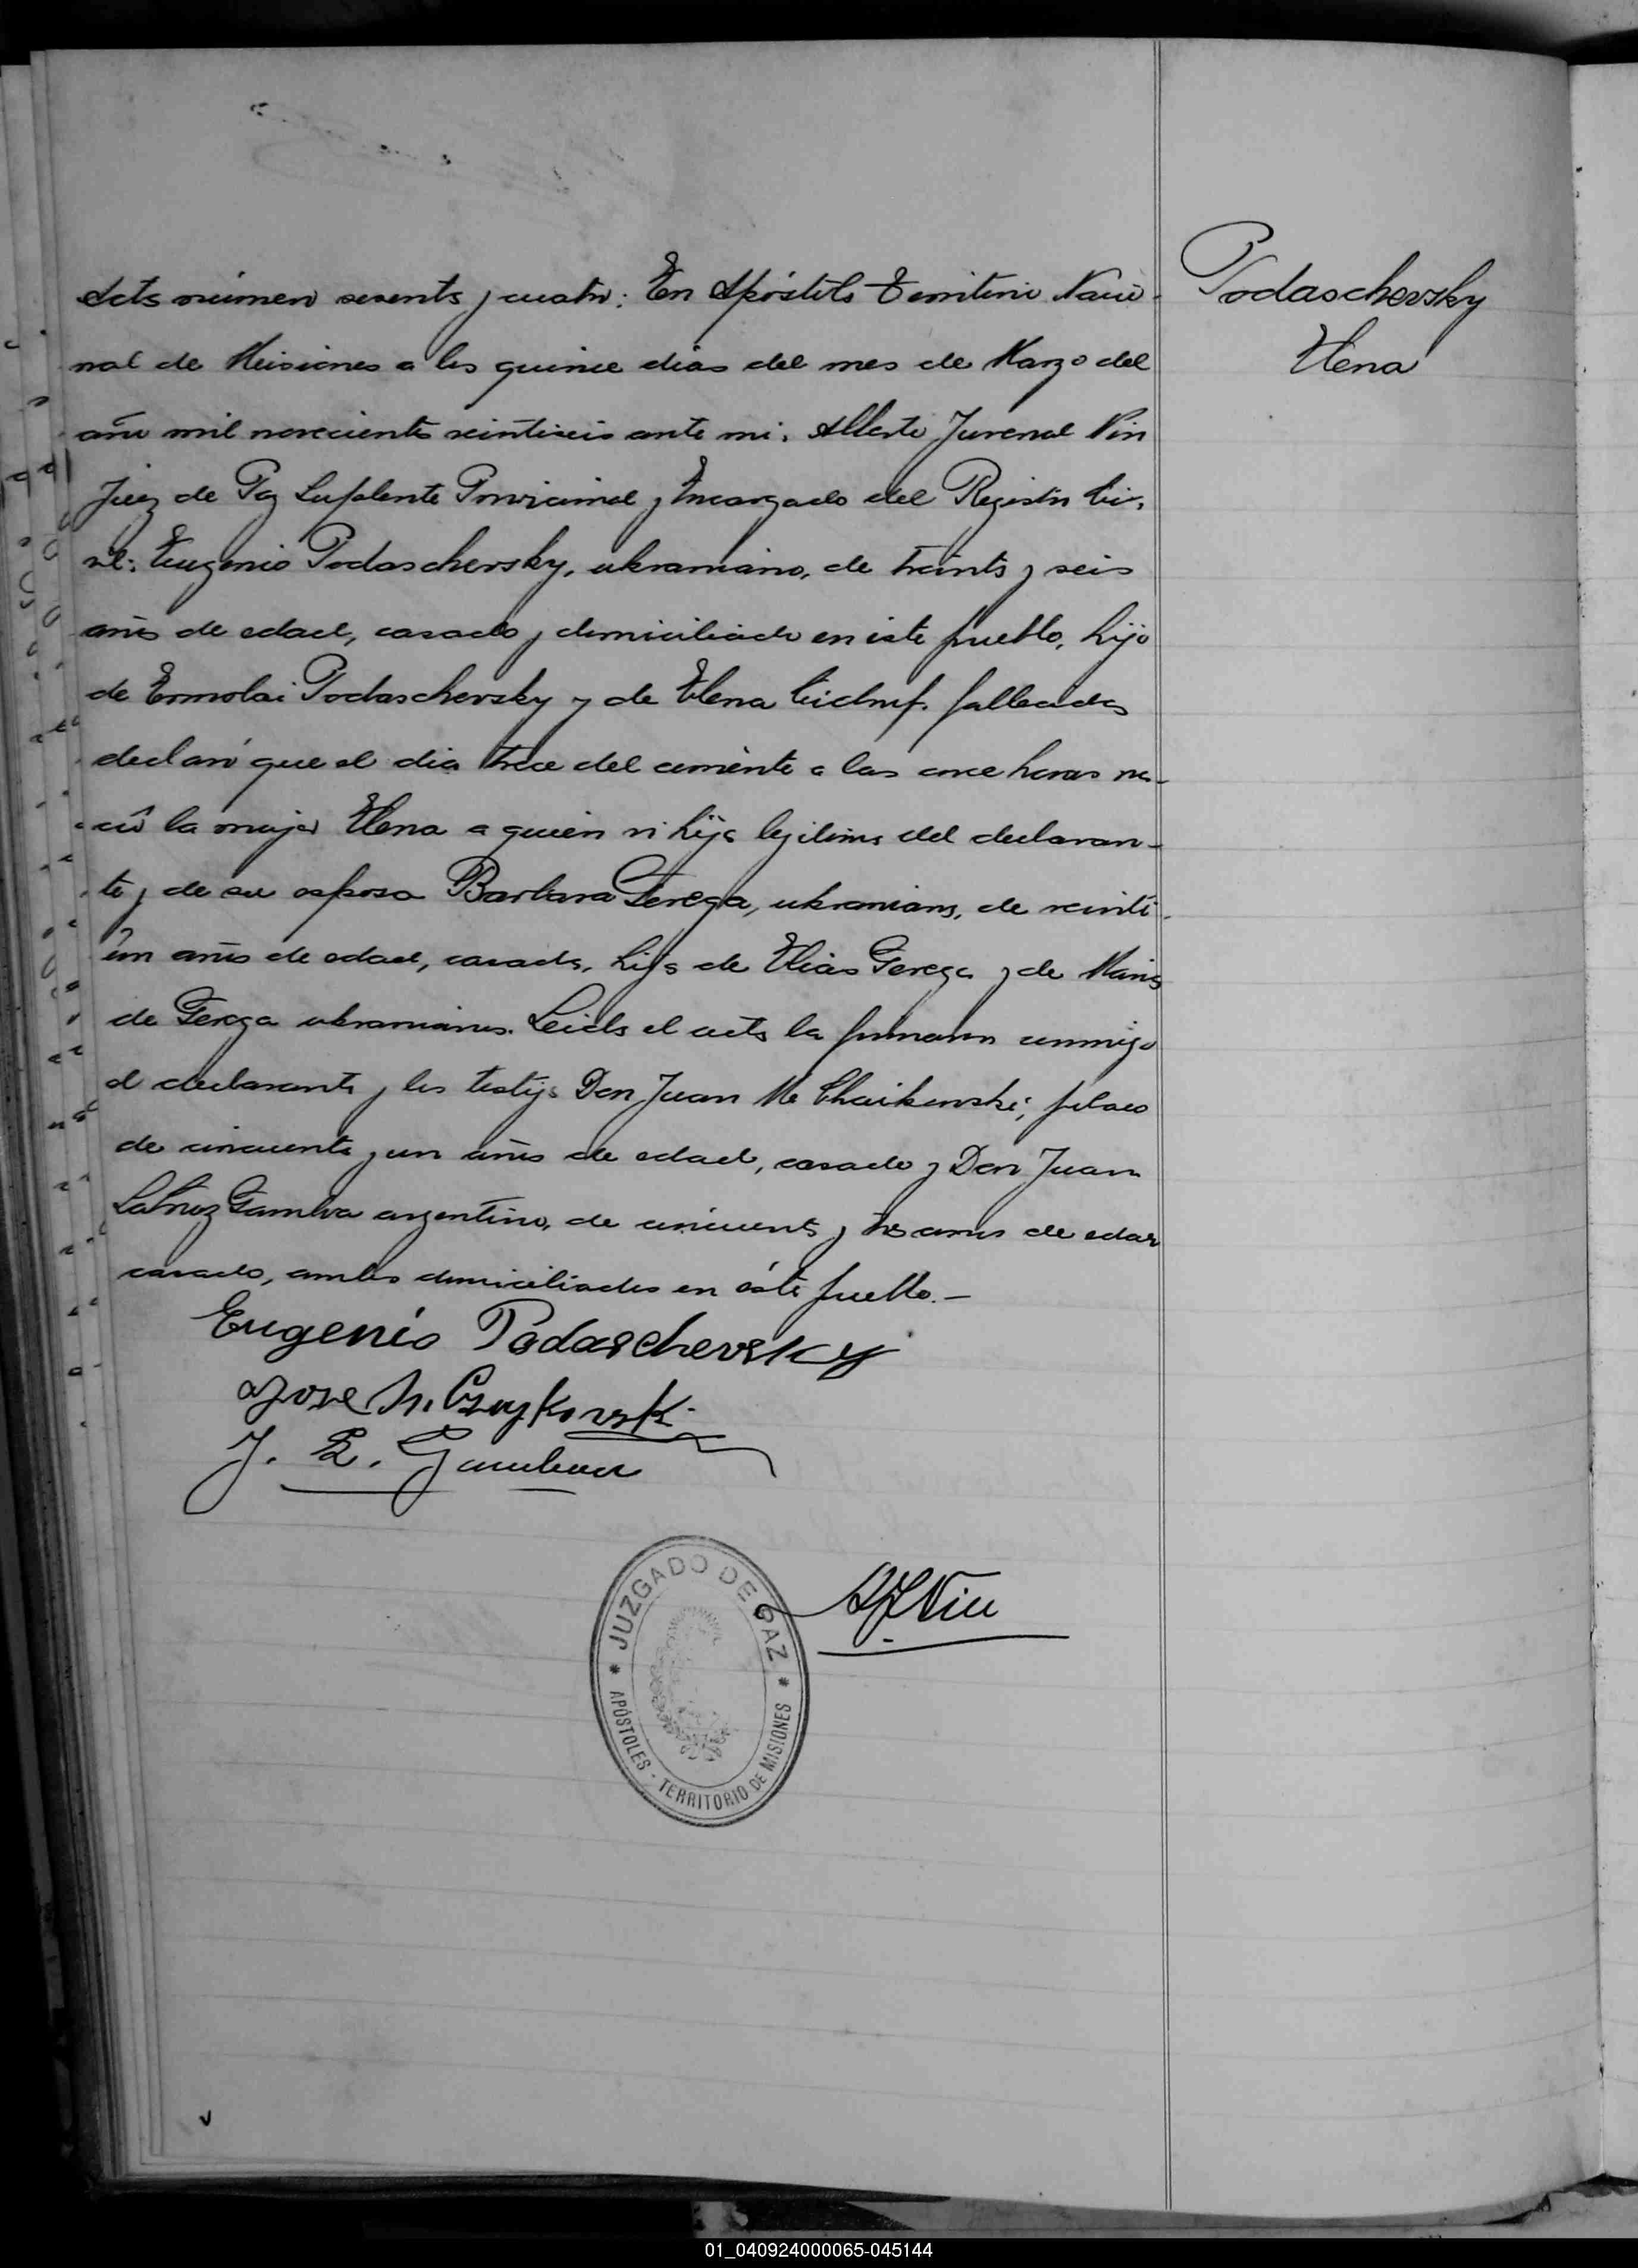 Podaschevsky
Elena
Acta número sesenta y cuatro: En Apóstoles Territorio Nacio-
nal de Misiones a los quince dias del mes de Marzo del
año mil novecientos veintiseis ante mi, Alberto Juvenal Nin
Juez de Paz Suplente Provicional y Encargado del Registro Ci-
vil: Eugenio Podaschevsky, ukraniano, de treinta y seis
años de edad, casado y domiciliado en este pueblo, hijo
de Ermolai Podaschevsky y de Elena fallecidos
declaró que el dia trece del corriente a las once horas na-
ció la mujer Elena a quien vi hija legitima del declaran-
te y de su esposa Barbara Gerega, ukraniana, de veinti-
ún años de edad, casada, hija de Elias Gerega y de Maria
de Gerega ukranianos. Leida el acta la firmaron conmigo
el declarante y los testigos Don Juan M. Chaikowski, polaco
de cincuenta y un años de edad, casado y Don Juan
LaCruz Gamboa argentino, de cincuenta y tres años de edad
casado, ambos domiciliados en éste pueblo.-
Eugenio Podaschevsky
Jose N. Czaykowski
J. L. Gamboa
AJNin
JUZGADO DE PAZ
APÓSTOLES - TERRITORIO DE MISIONES
01_040924000065-045144